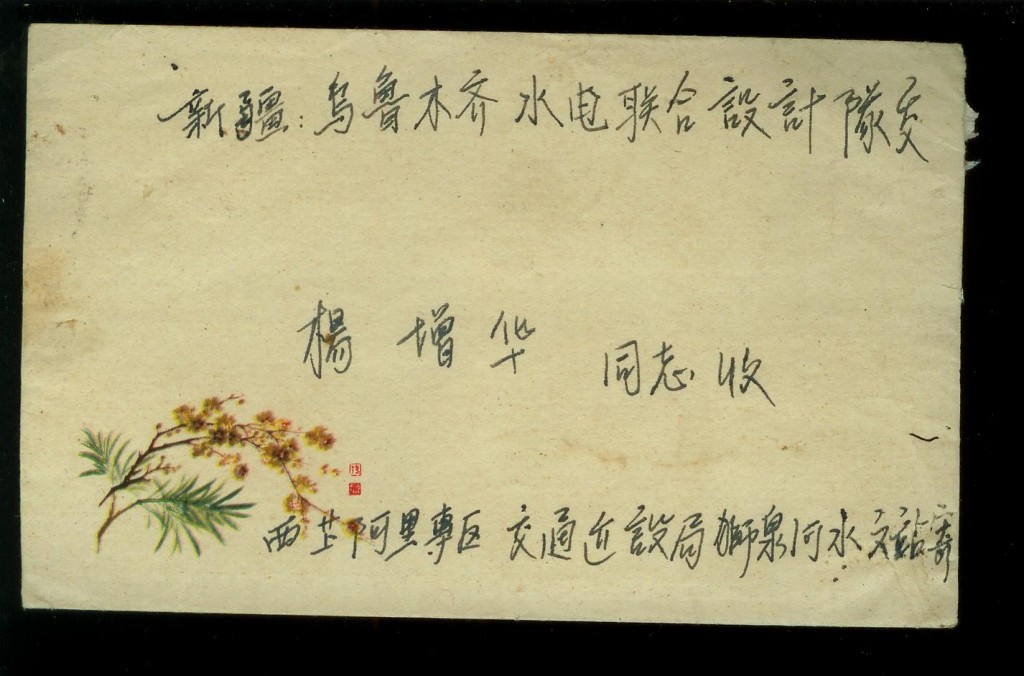 新疆:乌魯木齐水电联合設計隊交
楊增华 同志收
西芷阿里專区 交通近設局獅泉河水文站寄